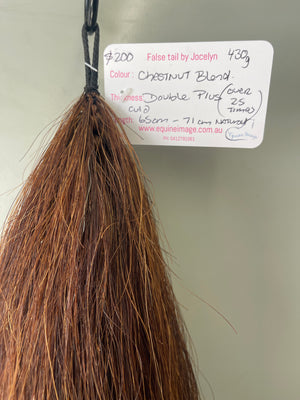 $200 False tail by Jocelyn 430g
Colour: CHESTNUT Blend.
Thickness Double Plus (over 25 Times)
Length. 65cm - 71cm NATURAL
www.equineimage.com.au